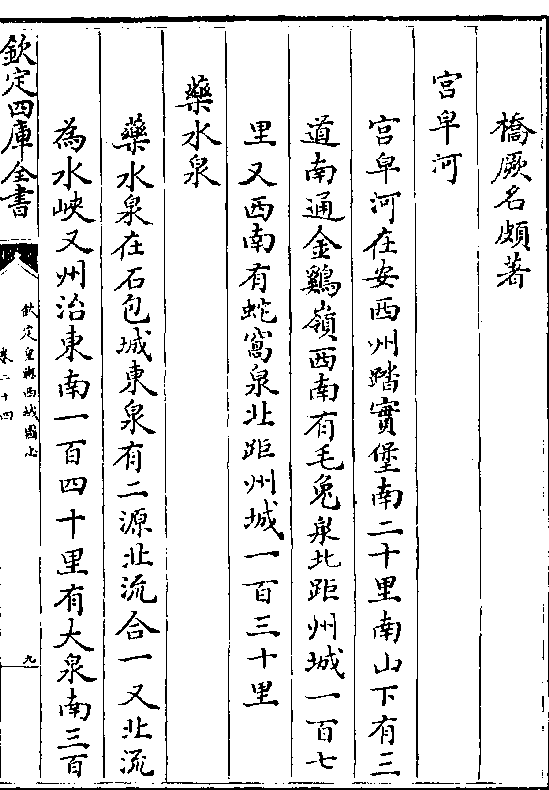 橋厥名頗著
宫臯河
宫臯河在安西州踏實堡南二十里南山下有三
道南通金鷄嶺西南有毛兔泉北距州城一百七
里又西南有蛇窩泉北距州城一百三十里
藥水泉
藥水泉在石包城東泉有二源北流合一又北流
為水峽又州治東南一百四十里有大泉南三百
欽定四庫全書
欽定皇輿西域圖志
卷二十四
九